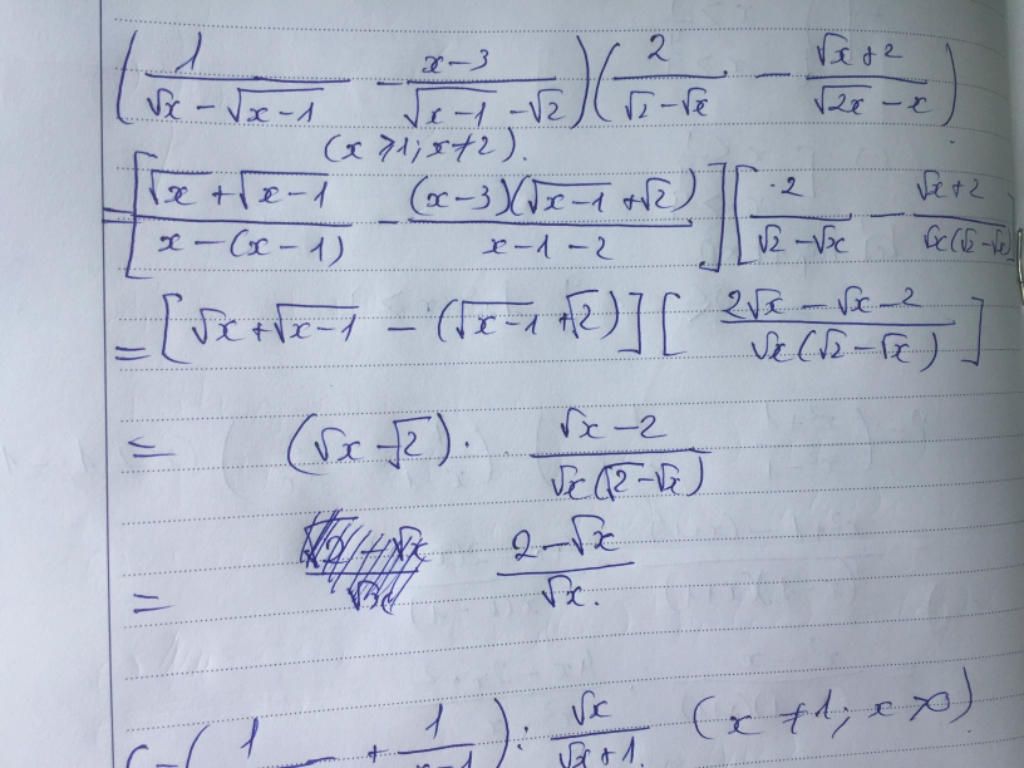 (1/(√x − √(x−1)) − (x−3)/(√(x−1) − √2)) (2/(√2 − √x) − (√x + 2)/(√(2x) − x))
(x ≥ 1; x ≠ 2).
[(√x + √(x−1))/(x − (x − 1)) − ((x−3)(√(x−1) + √2))/(x − 1 − 2)] [2/(√2 − √x) − (√x + 2)/(√x(√2 − √x))]
= [√x + √(x−1) − (√(x−1) + √2)] [(2√x − √x − 2)/(√x(√2 − √x))]
= (√x − √2) · (√x − 2)/(√x(√2 − √x))
= (2 − √x)/√x.
(1/ + 1/(x−1)) : √x/(√x + 1). (x ≠ 1; x > 0)